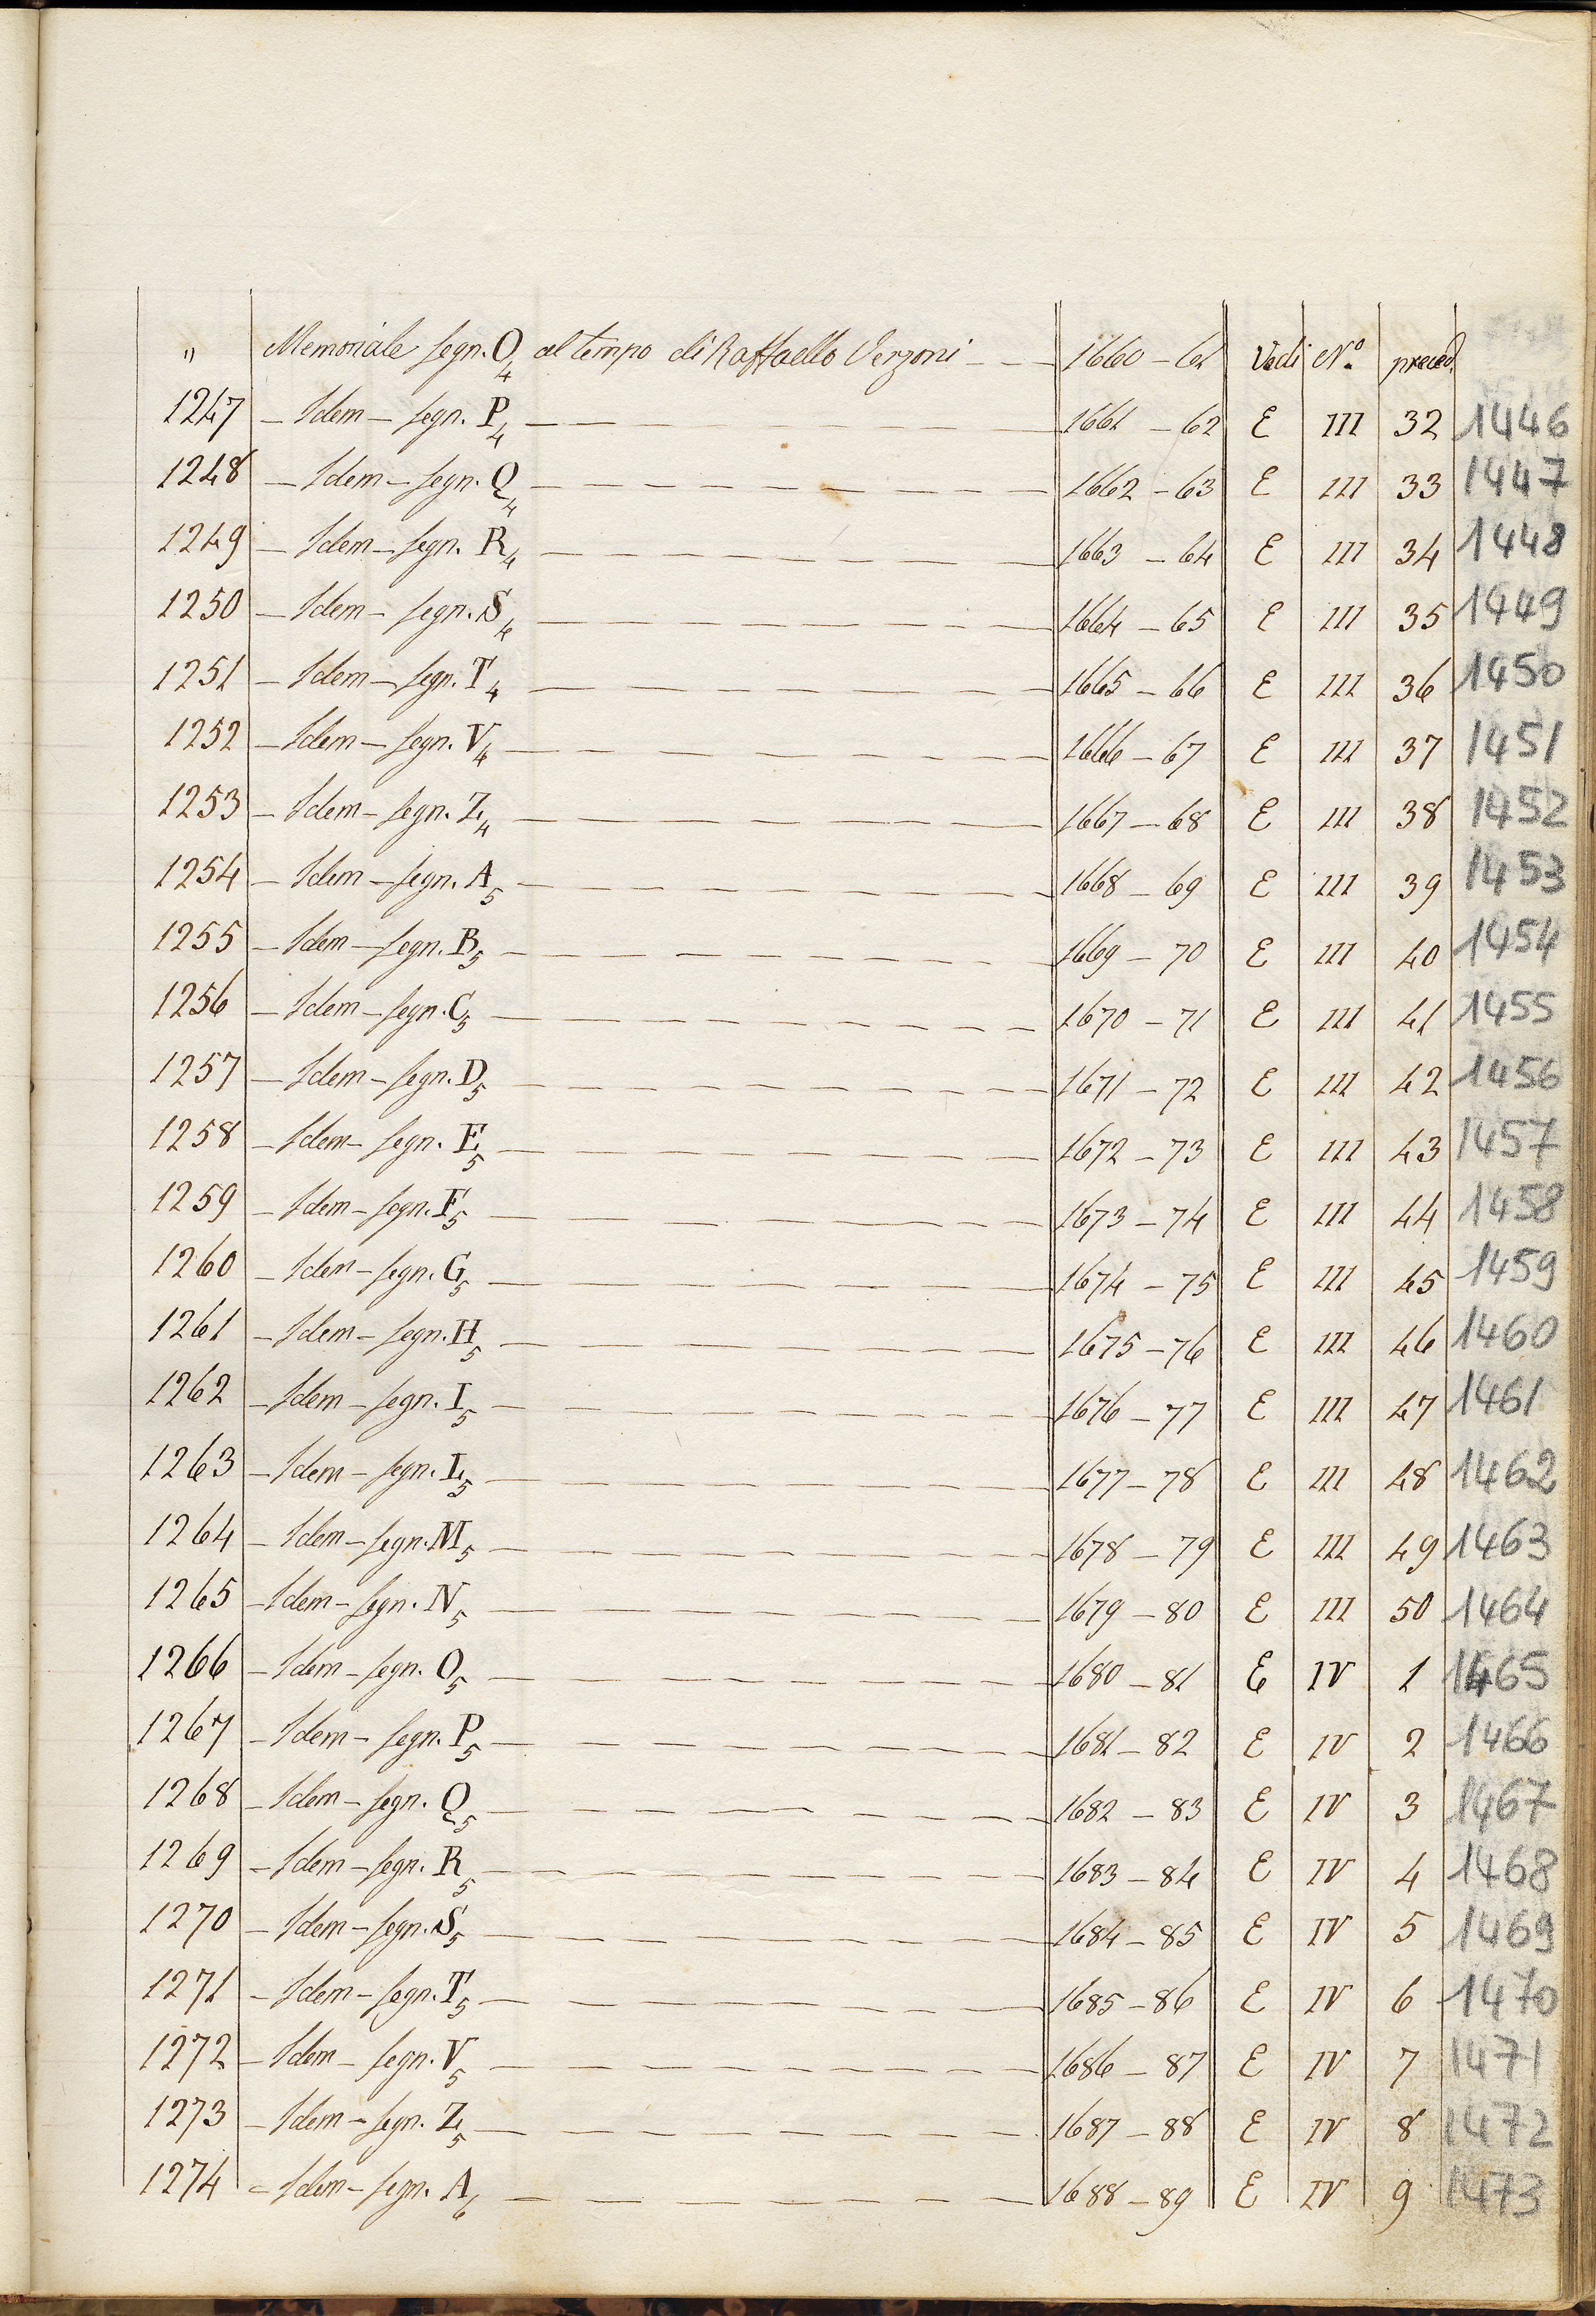 " Memoriale segn. O4 al tempo di Raffaello Verzoni - - - 1660 - 61 Vedi N.º preced.
1247 - Idem - segn. P4 - - - 1661 - 62 E III 32 1446
1248 - Idem - segn. Q4 - - - 1662 - 63 E III 33 1447
1249 - Idem - segn. R4 - - - 1663 - 64 E III 34 1448
1250 - Idem - segn. S4 - - - 1664 - 65 E III 35 1449
1251 - Idem - segn. T4 - - - 1665 - 66 E III 36 1450
1252 - Idem - segn. V4 - - - 1666 - 67 E III 37 1451
1253 - Idem - segn. Z4 - - - 1667 - 68 E III 38 1452
1254 - Idem - segn. A5 - - - 1668 - 69 E III 39 1453
1255 - Idem - segn. B5 - - - 1669 - 70 E III 40 1454
1256 - Idem - segn. C5 - - - 1670 - 71 E III 41 1455
1257 - Idem - segn. D5 - - - 1671 - 72 E III 42 1456
1258 - Idem - segn. E5 - - - 1672 - 73 E III 43 1457
1259 - Idem - segn. F5 - - - 1673 - 74 E III 44 1458
1260 - Idem - segn. G5 - - - 1674 - 75 E III 45 1459
1261 - Idem - segn. H5 - - - 1675 - 76 E III 46 1460
1262 - Idem - segn. I5 - - - 1676 - 77 E III 47 1461
1263 - Idem - segn. L5 - - - 1677 - 78 E III 48 1462
1264 - Idem - segn. M5 - - - 1678 - 79 E III 49 1463
1265 - Idem - segn. N5 - - - 1679 - 80 E III 50 1464
1266 - Idem - segn. O5 - - - 1680 - 81 E IV 1 1465
1267 - Idem - segn. P5 - - - 1681 - 82 E IV 2 1466
1268 - Idem - segn. Q5 - - - 1682 - 83 E IV 3 1467
1269 - Idem - segn. R5 - - - 1683 - 84 E IV 4 1468
1270 - Idem - segn. S5 - - - 1684 - 85 E IV 5 1469
1271 - Idem - segn. T5 - - - 1685 - 86 E IV 6 1470
1272 - Idem - segn. V5 - - - 1686 - 87 E IV 7 1471
1273 - Idem - segn. Z5 - - - 1687 - 88 E IV 8 1472
1274 - Idem - segn. A6 - - - 1688 - 89 E IV 9 1473